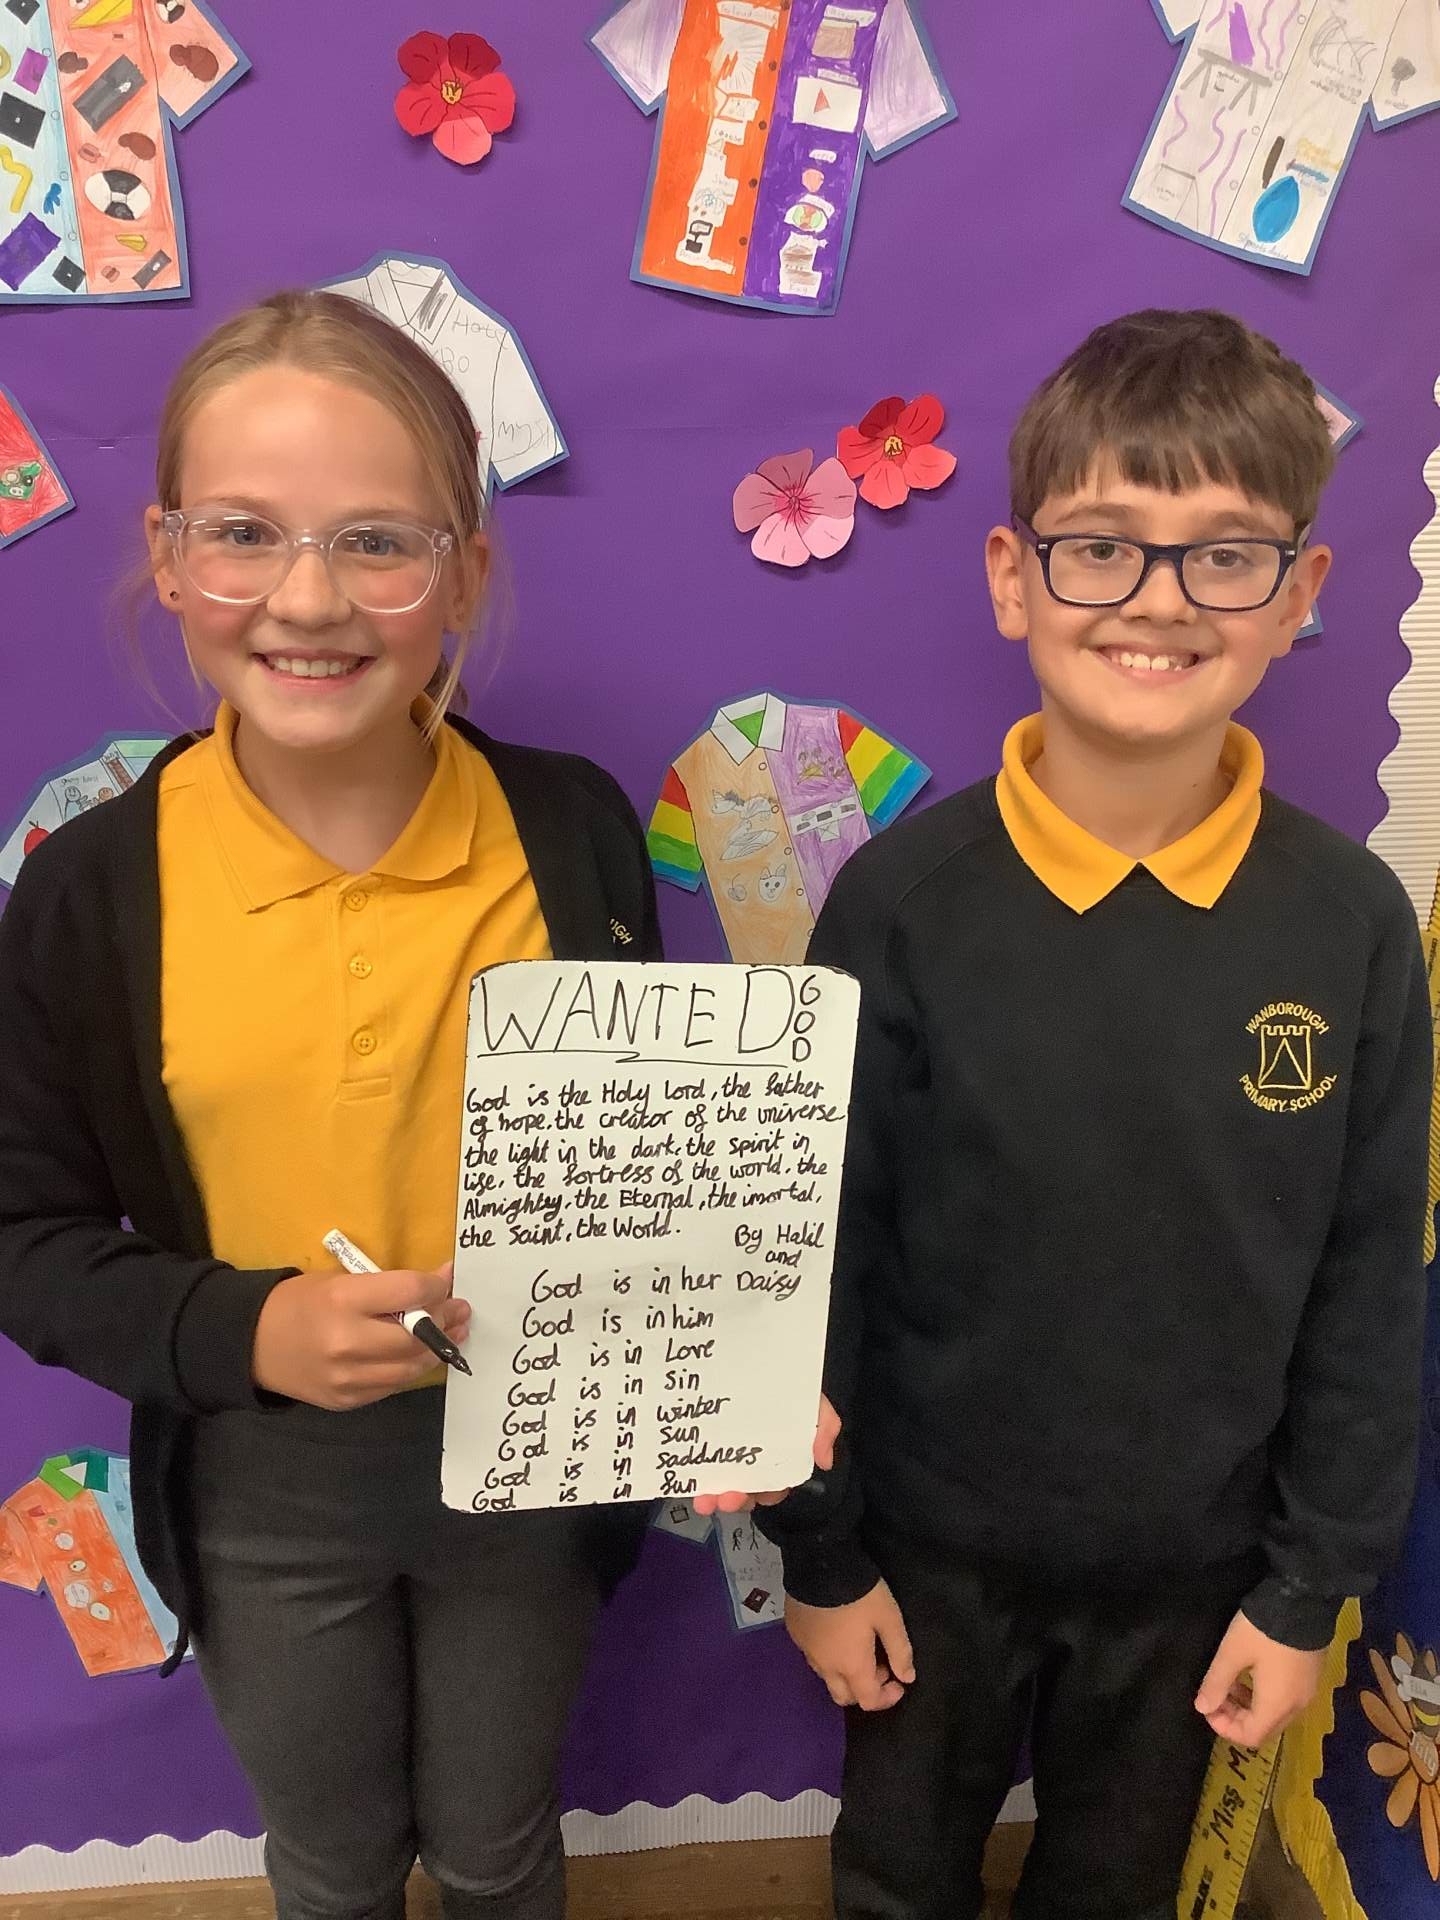 WANTED GOD
God is the Holy Lord, the father
of hope, the creator of the universe
the light in the dark, the spirit in
life, the fortress of the world, the
Almighty, the Eternal, the imortal,
the Saint, the World.
By Halil
and
Daisy
God is in her
God is in him
God is in Love
God is in Sin
God is in winter
God is in sun
God is in saddness
God is in fun
WANBOROUGH
PRIMARY SCHOOL
Miss M
Ella